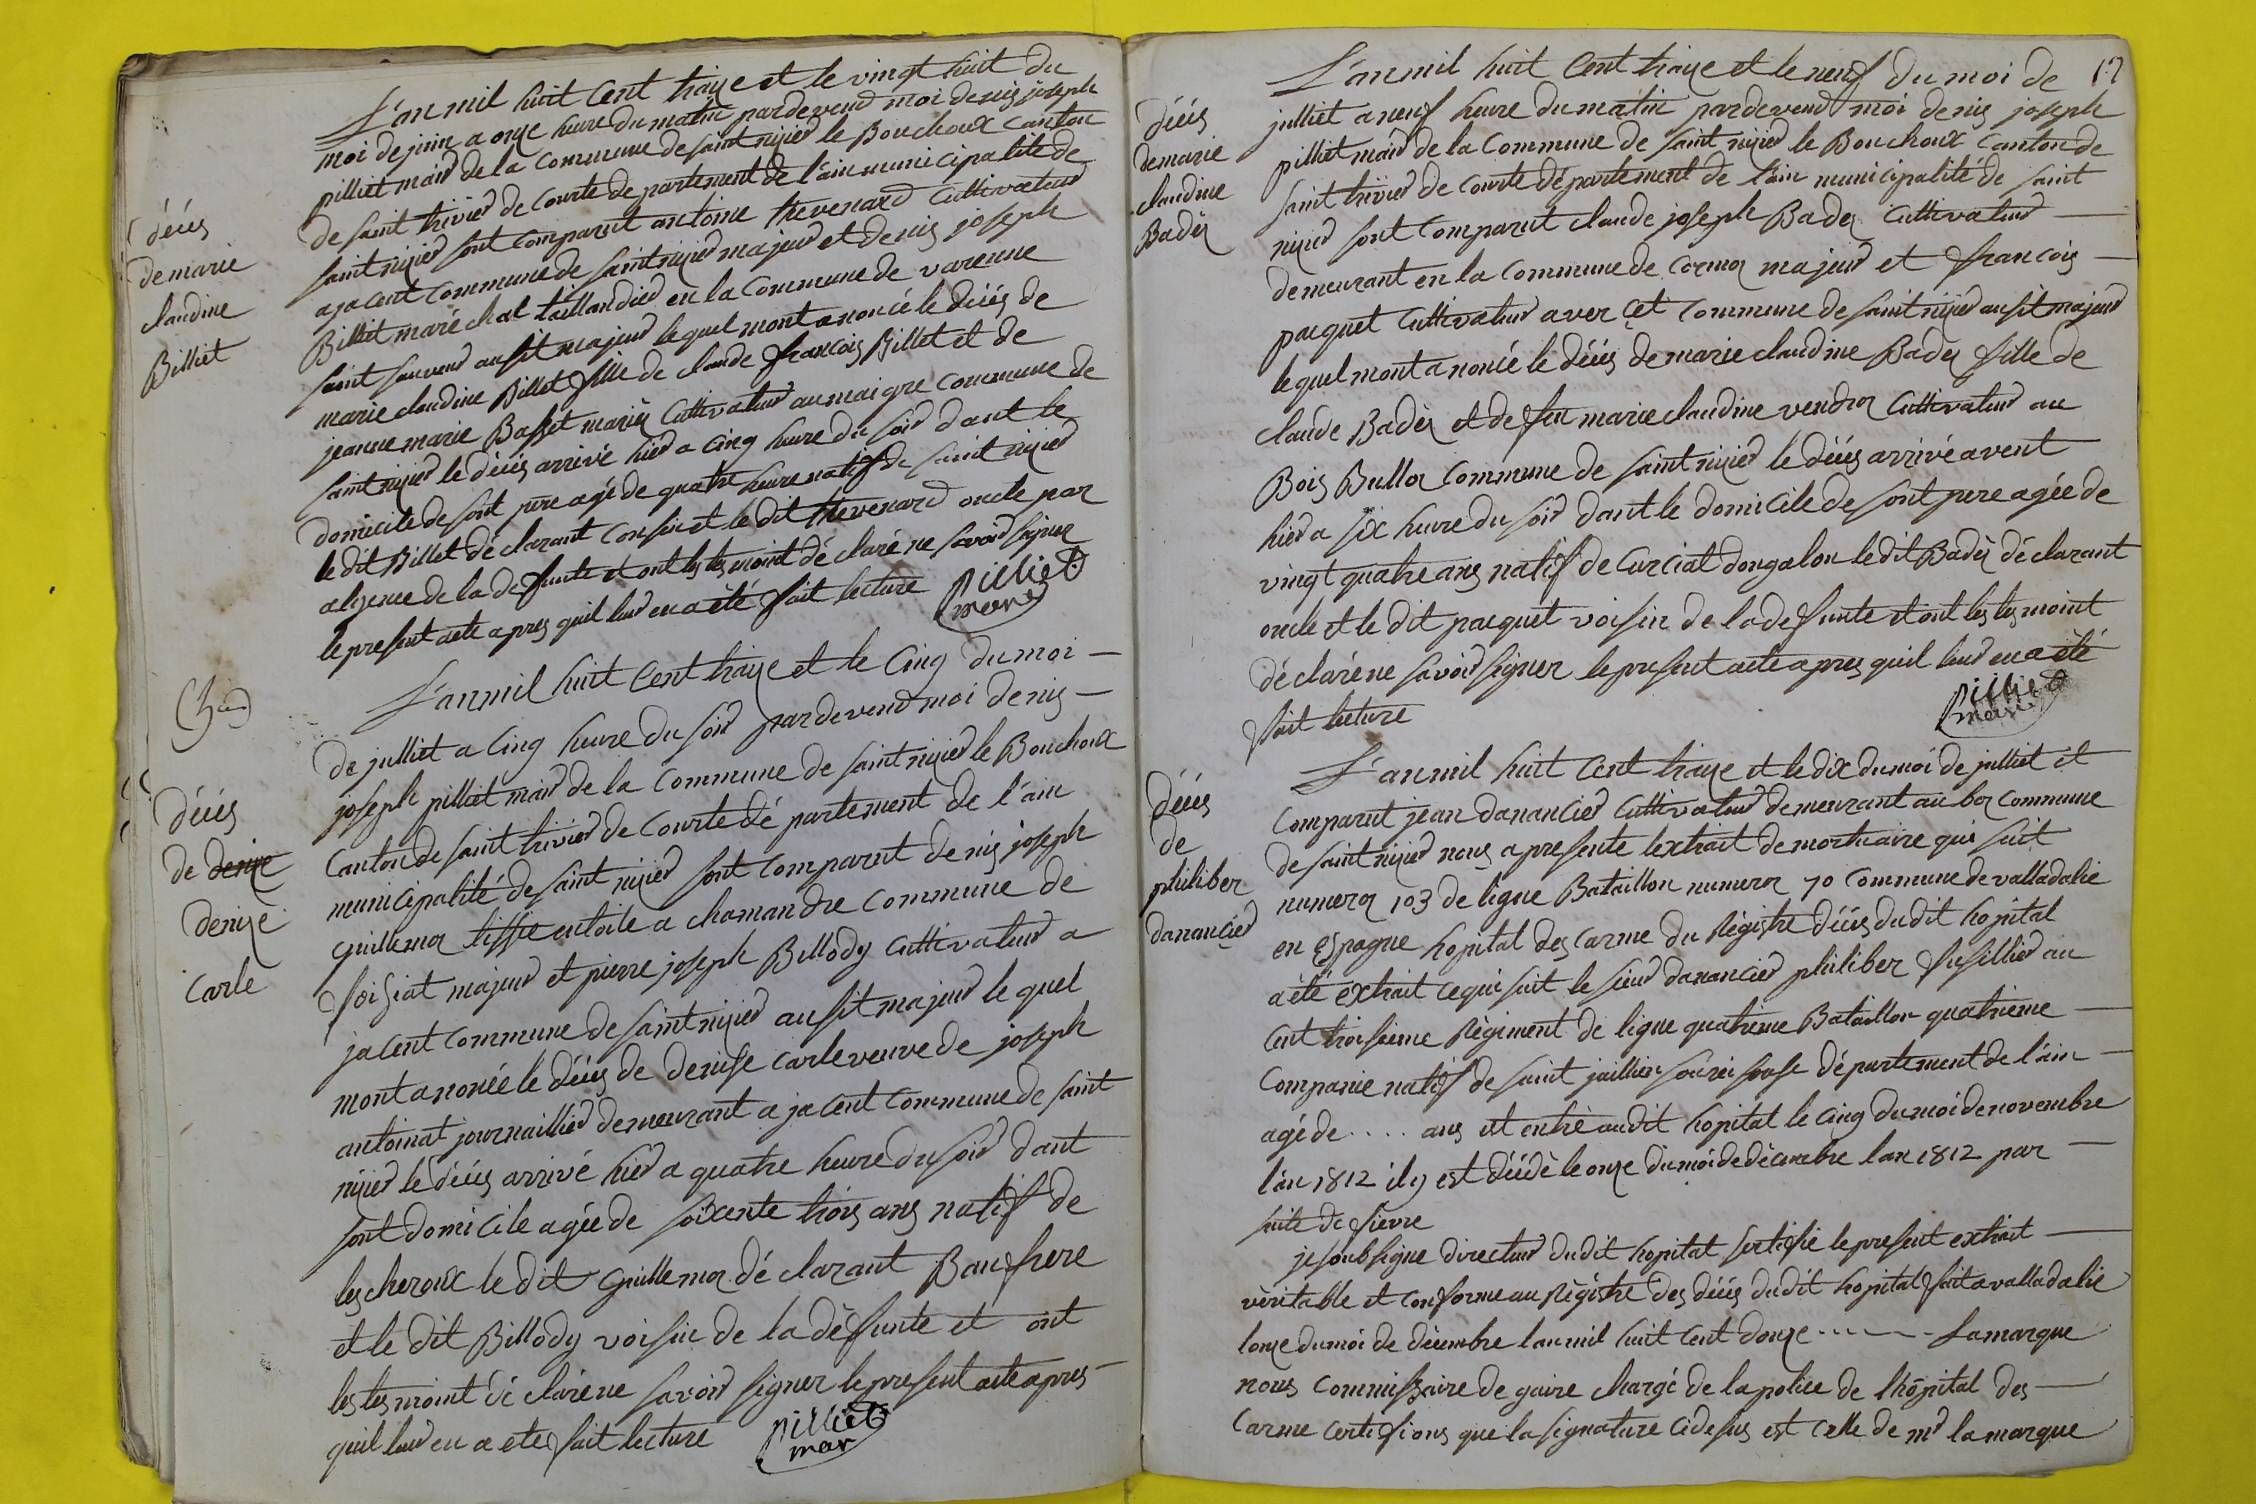 L'an mil huit Cent traize et le vingt huit du
moi de juin a onze heure du matin pardevend moi denis joseph
pilliet maird de la Commune de saint nizied le Bouchoux Canton
de saint trivied de Courte departement de l'ain municipalité de
saint nizied sont Comparut antoine thevenard Cultivateurd
ajacent Commune de saint nizied majeurd et denis joseph
Billiet maréchal taillandied en la Commune de varenne
saint sauveurd ausit majeurd lequel mont anoncé le déiés de
marie claudine Billet fille de claude francois Billet et de
jeanne marie Basset mariéz Cultivateurd au maigre Commune de
saint nizied le déiés arrivé hied a Cinq heure du soird dant le
domicile de sont pere agé de quatre heure natif de saint nizied
le dit Billet déclarant Cousin et le dit thevenard oncle par
alijence de la defunte et ont les tesmoint déclaré ne savoird signer
le present acte apres quil leurd en a été fait lecture
pilliet
mard
déiés
de marie
claudine
Billiet
L'an mil huit Cent traize et le Cinq du moi —
de julliet a Cinq heure du soird pardevend moi denis —
joseph pilliet maird de la Commune de saint nizied le Bouchoux
Canton de saint trivied de Courte département de l'ain
municipalité de saint nizied sont Comparut denis joseph
guillemoz tissie en toile a chamandre Commune de
foisiat majeurd et pierre joseph Billody Cultivateurd a
jacent Commune de saint nizied ausit majeurd le quel
mont anoncé le déiés de denise Carle veuve de joseph
antoinat journaillied demeurant a jacent Commune de saint
nizied le déiés arrivé hied a quatre heure du soird dant
sont domicile agée de soixente trois ans natif de
les cheroux le dit guillemoz déclarant Baufrere
et le dit Billody voisin de la défunte et ont
les tesmoint déclaré ne savoird signer le present acte apres —
quil leurd en a ete fait lecture
pilliet
mar
déiés
de denize
denize
Carle
17
L'an mil huit Cent traize et le neuf du moi de
julliet a neuf heure du matin pardevend moi denis joseph
pilliet maird de la Commune de saint nizied le Bouchoux Canton de
saint trivied de Courte département de l'ain municipalité de saint
nizied sont Comparut claude joseph Badez Cultivateurd —
demeurant en la Commune de Cormoz majeurd et francois —
pacquet Cultivateurd a verçet Commune de saint nizied ausit majeurd
lequel mont anoncé le déiés de marie claudine Badez fille de
claude Badéz et de feu marie claudine vendoz Cultivateurd au
Bois Bulloz Commune de saint nizied le déiés arrivé avent
hied a six heure du soird dant le domicile de sont pere agée de
vingt quatre ans natif de Curciat dongalon le dit Badéz déclarant
oncle et le dit pacquet voisin de la defunte et ont les tesmoint
déclaré ne savoird signer le present acte apres quil leurd en a été
fait lecture
pilliet
mard
déiés
de marie
claudine
Badéz
L'an mil huit Cent traize et le dix du moi de julliet et
Comparut jean danancied Cultivateurd demeurant au boz Commune
de saint nizied nous a presente lextrait de mortuaire qui suit
numeroz 103 de ligne Bataillon numeroz 70 Commune de valladalie
en Espagne hopital des Carme du Régistre déiés dudit hopital
a été extrait ce qui suit le sieurd danancied philiber fusillied au
Cent troisieme Régiment de ligne quatrieme Bataillon quatrieme —
Companie natif de saint juillien soureissouse département de l'ain —
agé de .... ans est entré audit hopital le Cinq du moi de novembre
l'an 1812 il y est déiédé le onze du moi de décembre lan 1812 par —
suite de fievre
je soubsigne directeurd dudit hopital sertifie le present extrait —
véritable et conforme au Régistre des déiés dudit hopital fait a valladalie
lonze du moi de décembre lan mil huit Cent douze ..... Lamarque
nous Commissaire de gaire chargé de la police de lhôpital des —
Carme Certifions que la signature Cidesus est Celle de mr lamarque
déiés
de
philiber
danancied